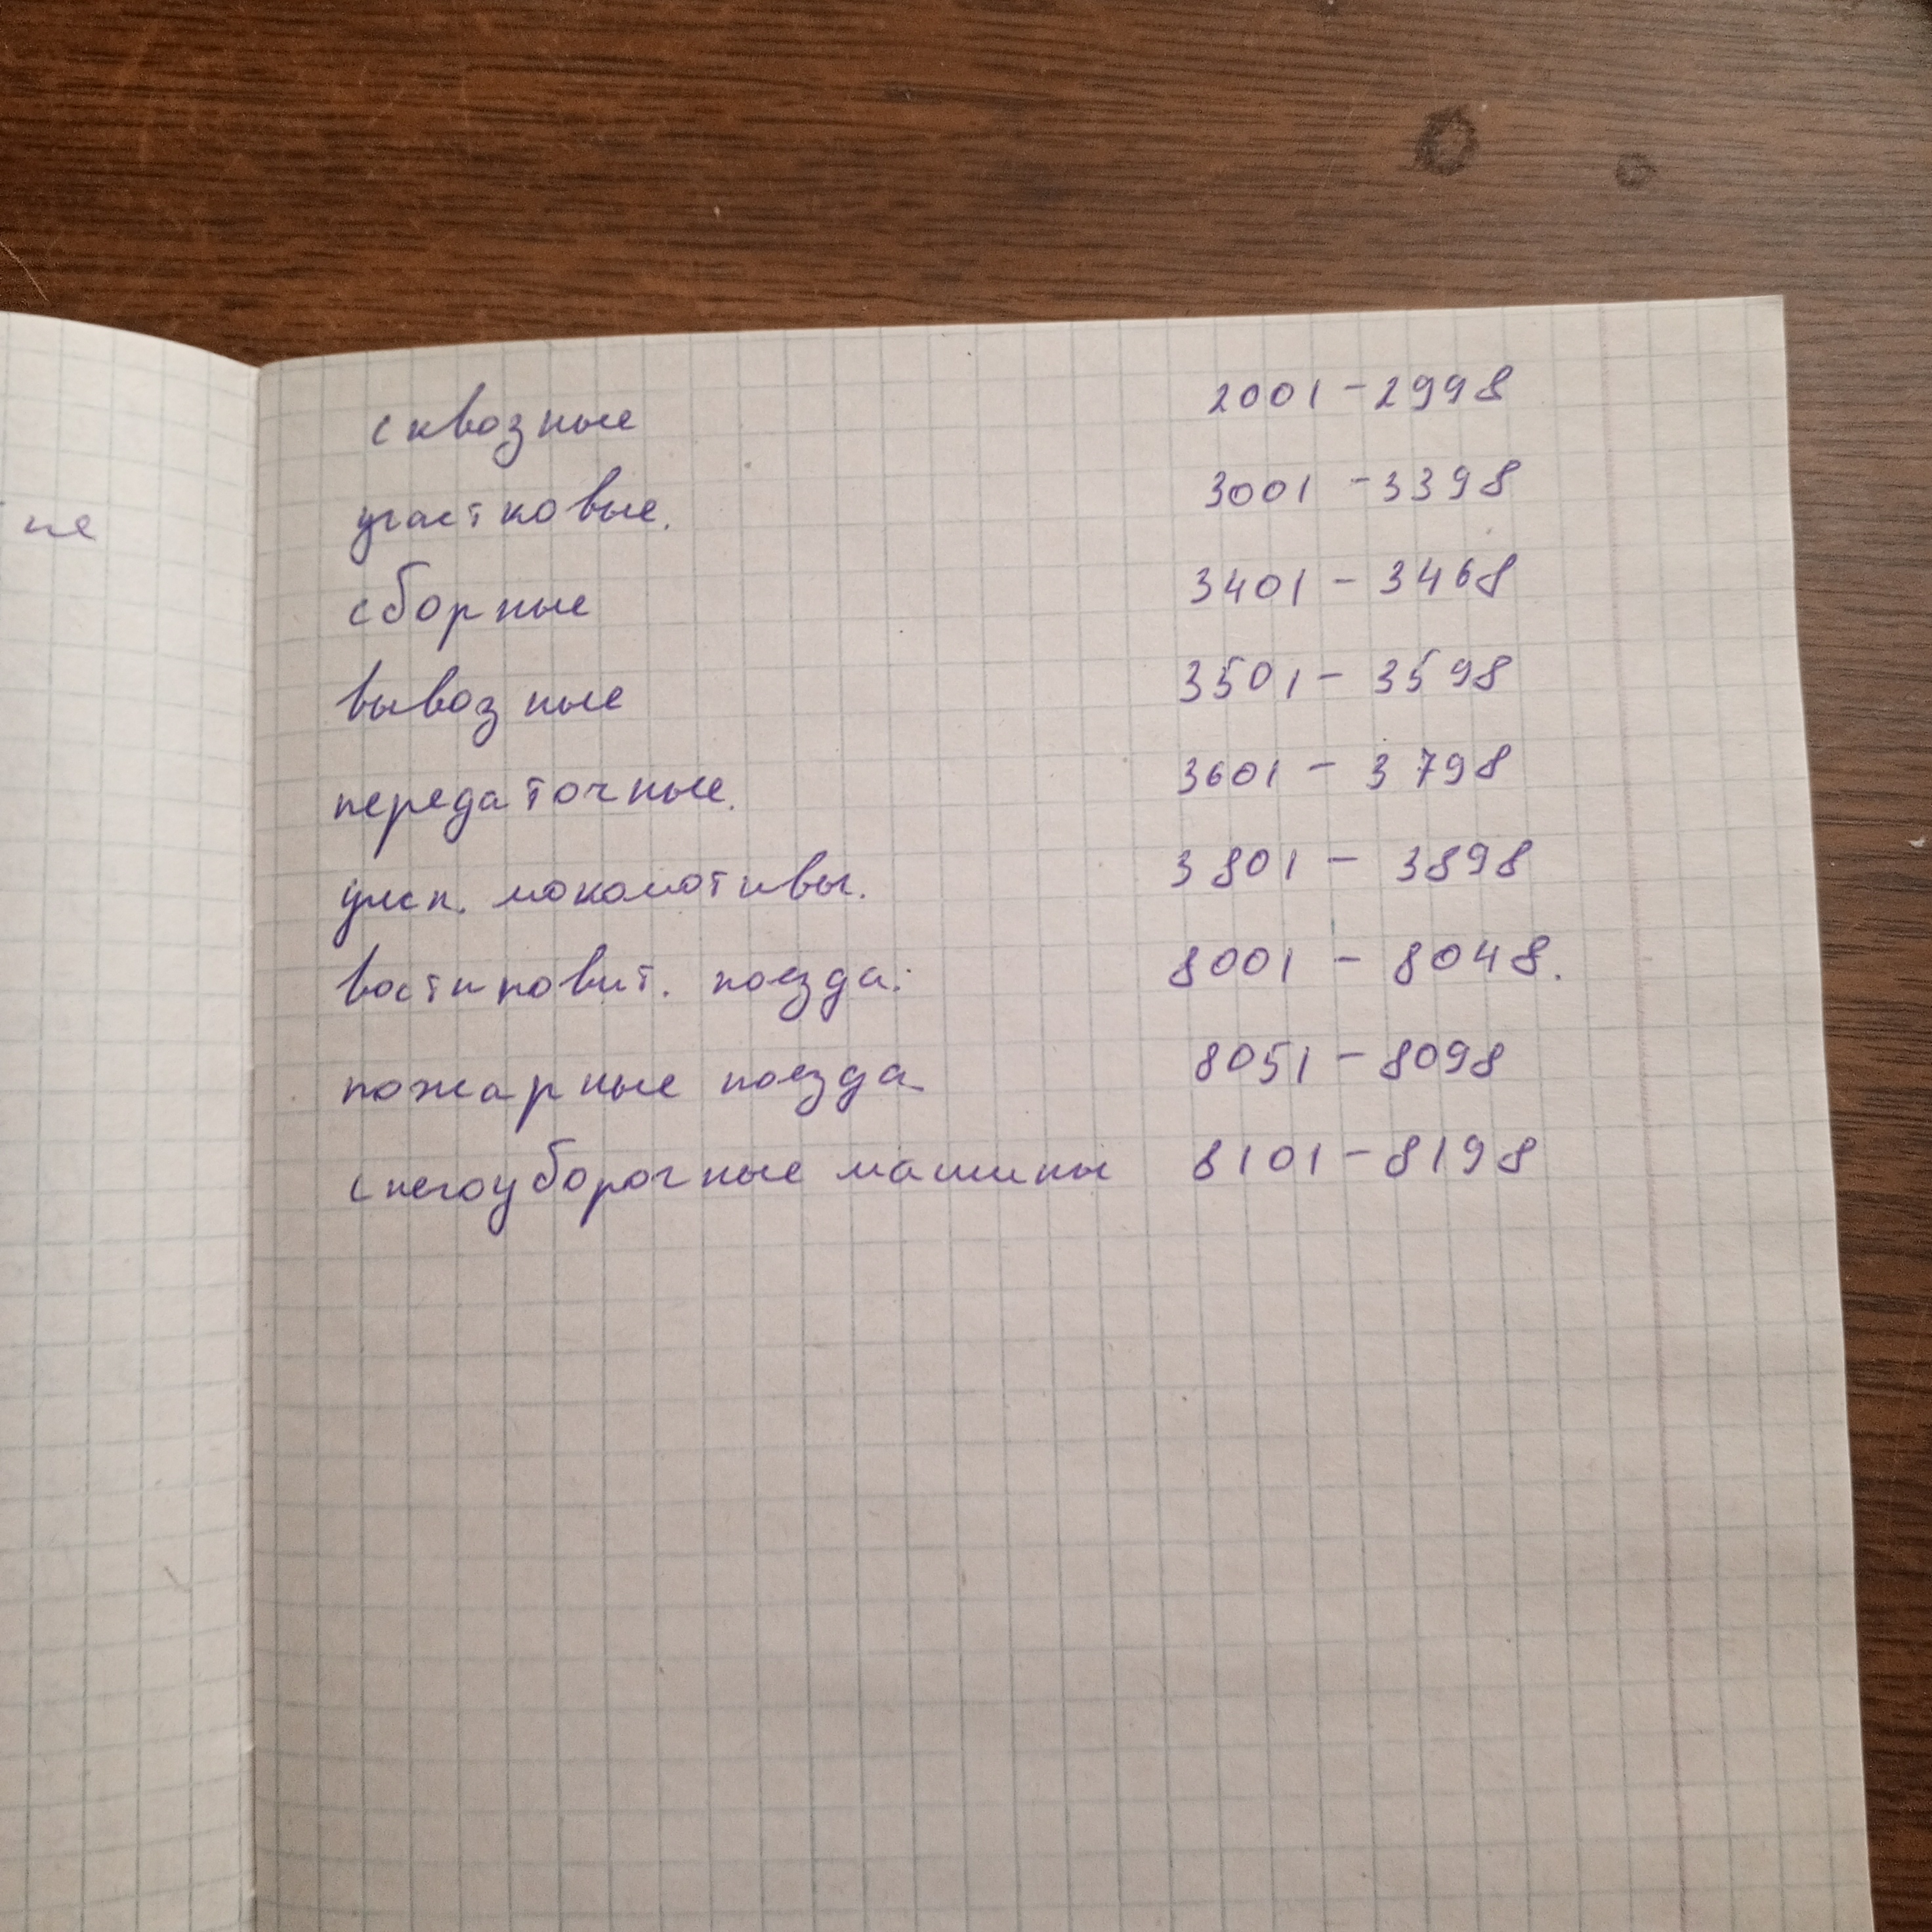 не
сквозные 2001 - 2998
участковые. 3001 - 3398
сборные 3401 - 3468
вывозные 3501 - 3598
передаточные. 3601 - 3798
локомотивы. 3801 - 3898
поезда: 8001 - 8048.
пожарные поезда 8051 - 8098
снегоуборочные машины 8101 - 8198